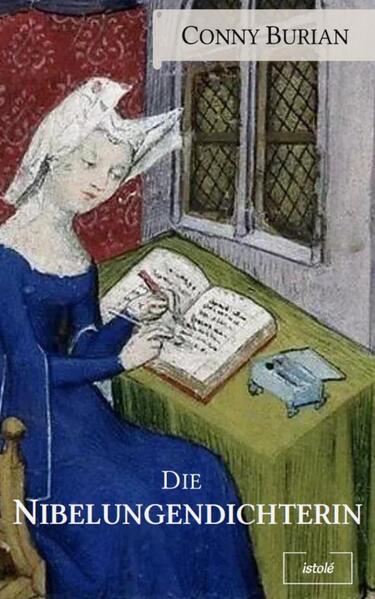 CONNY BURIAN
DIE
NIBELUNGENDICHTERIN
istolé